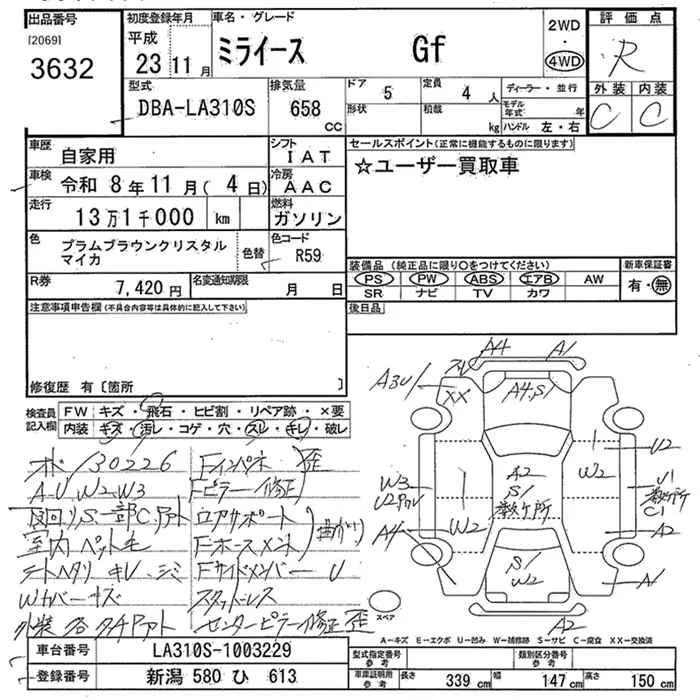 出品番号
[2069]
3632
初度登録年月
平成
23 11 月
車名・グレード
ミライース Gf
2WD
4WD
評価点
R
外装 内装
C C
型式
DBA-LA310S
排気量
658 CC
ドア 5
定員 4 人
形状
積載 kg
ディーラー・並行
モデル年式 年
ハンドル 左・右
車歴 自家用
シフト IAT
車検 令和 8年 11月( 4日)
冷房 AAC
走行 13万1千000 km
燃料 ガソリン
色 プラムブラウンクリスタル
マイカ
色替
色コード R59
R券 7,420円
名変通知期限 月 日
セールスポイント(正常に機能するものに限ります)
☆ユーザー買取車
装備品(純正品に限り○をつけてください)
PS PW ABS エアB AW
SR ナビ TV カワ
新車保証書
有・無
後日品
注意事項申告欄(不具合内容等は具体的に記入して下さい)
修復歴 有〔箇所 〕
検査員
記入欄
FW キズ・飛石・ヒビ割・リペア跡・×要
内装 キズ・汚レ・コゲ・穴・スレ・キレ・破レ
30226 Fインパネ 歪
A-U W2 W3 Fピラー修正
S一部C ロアサポート 曲がり
室内ペット毛
シートヘタリ キレ シミ Fサイドメンバー U
Wカバーキズ スタッドレス
外装各 センターピラー修正 歪
A4 A1
A3U XX A4.S
U2
W3 A2 W2 U1
U2 S/ 数ヶ所
W2 数ヶ所 C1
A4 A2
S/
W2
A1
A2
スペア
A-キズ E-エクボ U-凹み W-補修跡 S-サビ C-腐食 XX-交換済
車台番号 LA310S-1003229
登録番号 新潟 580 ひ 613
型式指定番号
参考
類別区分番号
参考
車庫証明用
参考
長さ 339 cm 幅 147 cm 高さ 150 cm